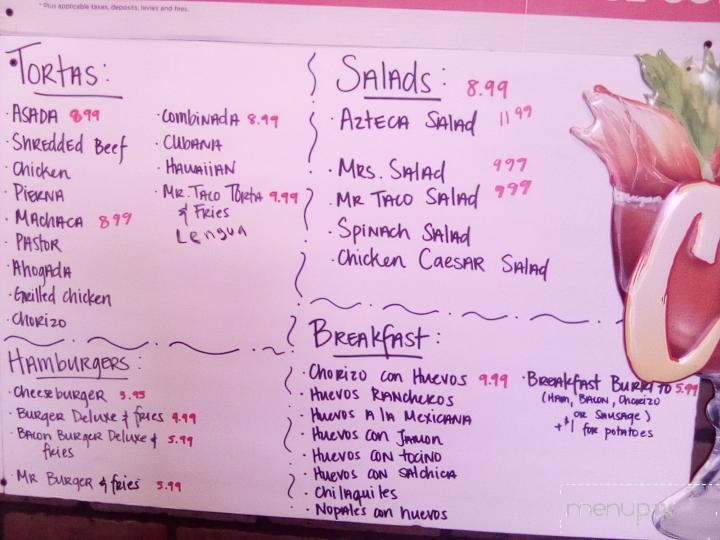 * Plus applicable taxes, deposits, levies and fees.
Tortas:
· Asada 8.99
· Shredded Beef
· Chicken
· Pierna
· Machaca 8.99
· Pastor
· Ahogada
· Grilled chicken
· Chorizo
· Combinada 8.99
· Cubana
· Hawaiian
· Mr. Taco Torta 9.99
& Fries
Lengua
Salads: 8.99
· Azteca Salad 11.99
· Mrs. Salad 9.99
· Mr Taco Salad 9.99
· Spinach Salad
· Chicken Caesar Salad
Hamburgers:
· Cheeseburger 3.95
· Burger Deluxe & fries 4.99
· Bacon Burger Deluxe & 5.99
fries
· Mr Burger & fries 5.99
Breakfast:
· Chorizo con Huevos 9.99
· Huevos Rancheros
· Huevos A la Mexicana
· Huevos con Jamon
· Huevos con tocino
· Huevos con Salchica
· Chilaquiles
· Nopales con huevos
· Breakfast Burrito 5.99
(Ham, Bacon, Chorizo
or Sausage)
+$1 for potatoes
C
menupix